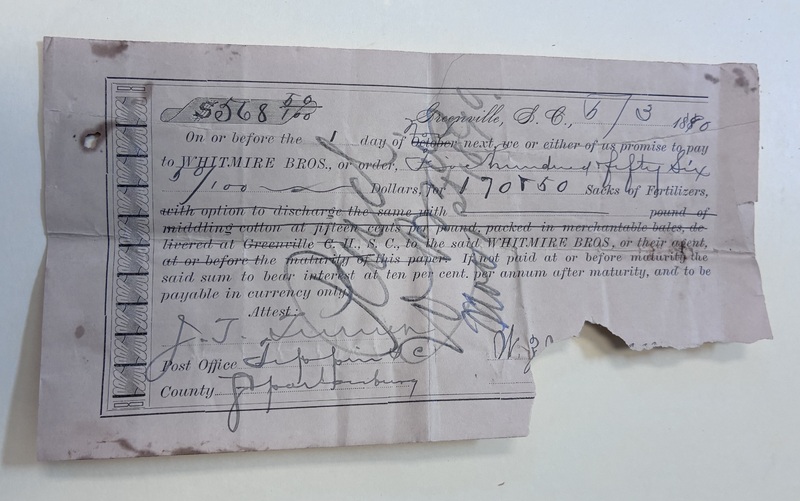 $568 50/100
Greenville, S. C., 6/3 1880
On or before the 1 day of October next, we or either of us promise to pay
to WHITMIRE BROS., or order, Five hundred & fifty Six
/100 Dollars, for 170850 Sacks of Fertilizers,
with option to discharge the same with pound of
middling cotton at fifteen cents per pound, packed in merchantable bales, de-
livered at Greenville C. H., S. C., to the said WHITMIRE BROS, or their agent,
at or before the maturity of this paper. If not paid at or before maturity the
said sum to bear interest at ten per cent. per annum after maturity, and to be
payable in currency only.
Attest:
J. T.
Post Office
County Spartanburg